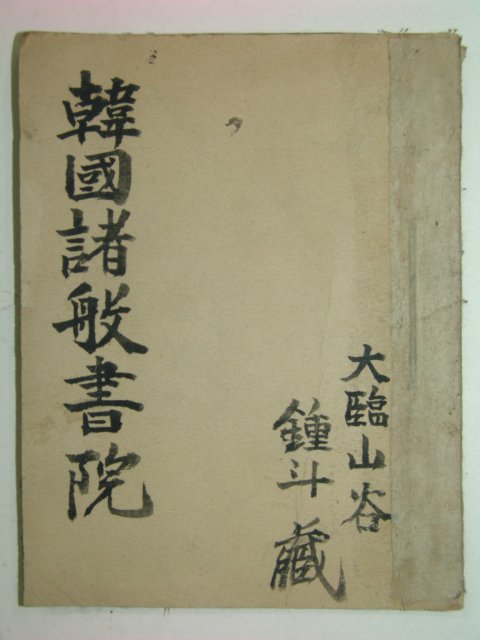 大臨山谷
鍾斗藏
韓國諸般書院